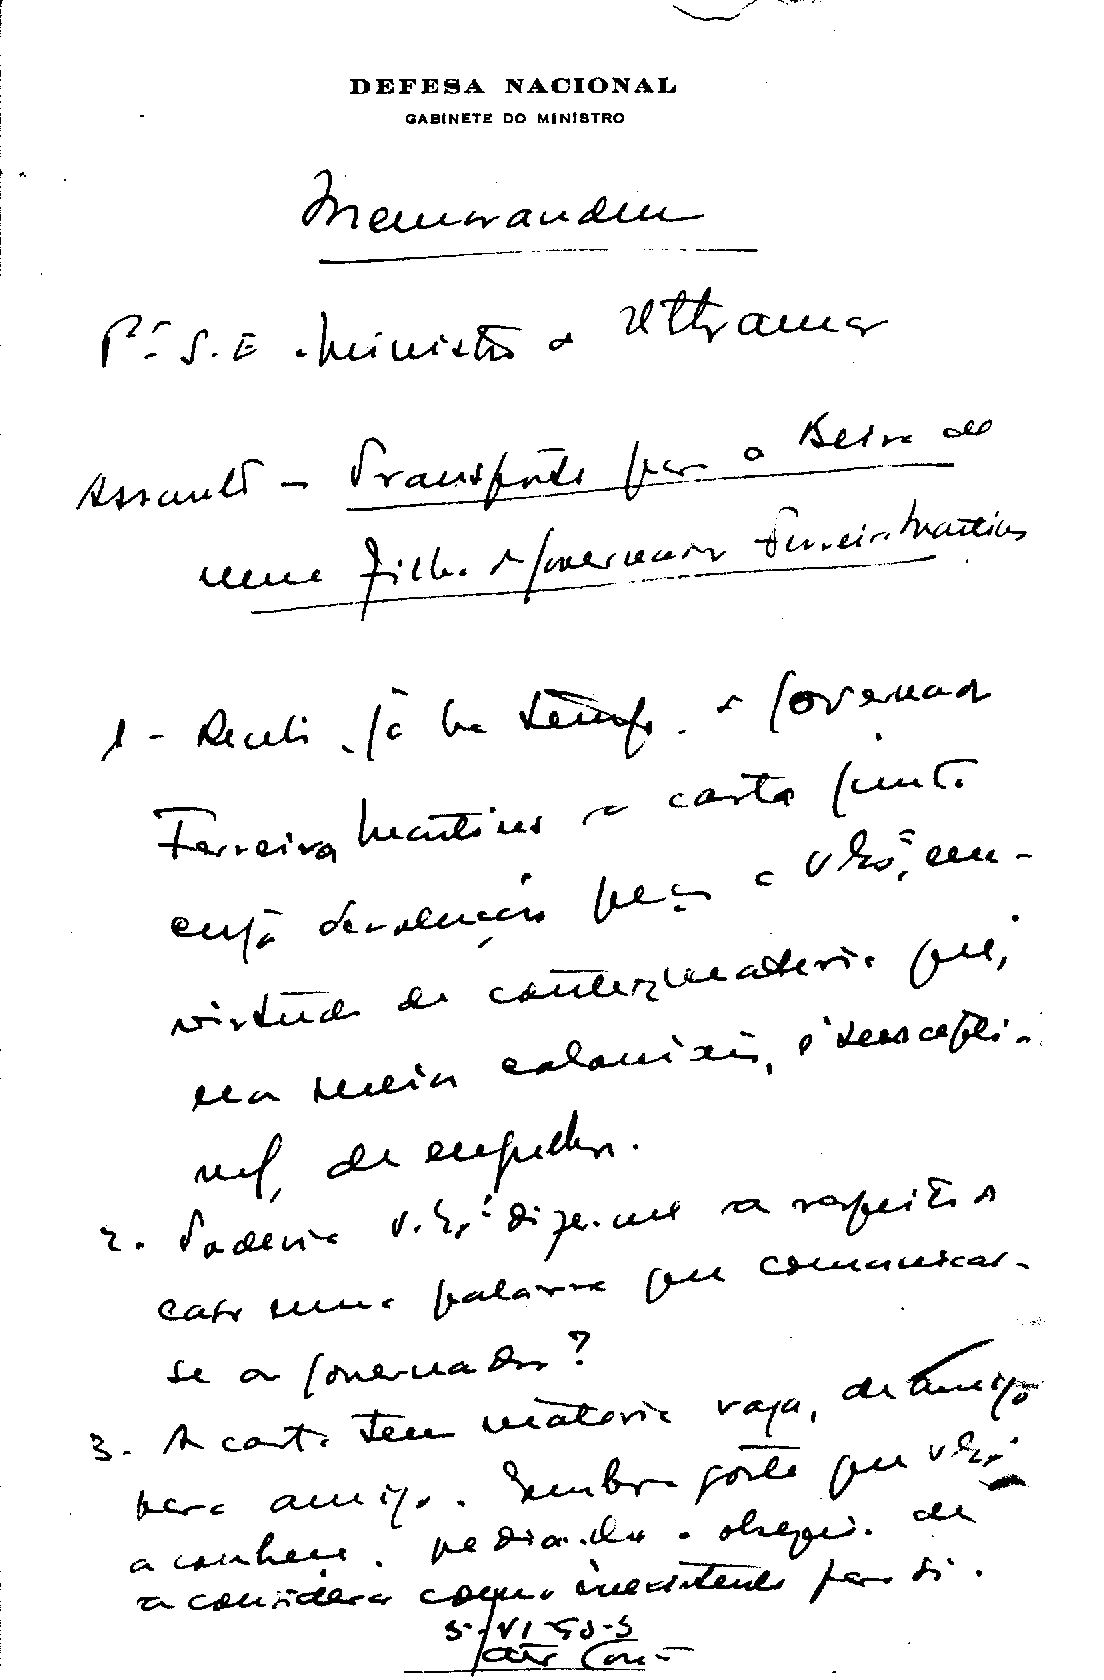 DEFESA NACIONAL
GABINETE DO MINISTRO
Memorandum
Pª S. E. Ministro do Ultramar
Assunto - Transporte para a Beira de
uma filha do Governador Ferreira Martins
1 - Recebi, já há tempo, do Governador
Ferreira Martins a carta junta
cuja devolução peço a V. Exª, em
virtude de conter matéria que,
na meia
de
2. Poderia V. Exª dizer-me a respeito do
caso uma palavra que comunicas-
se ao Governador?
3. A carta tem matéria vaga, de amigo
para amigo. Embora goste que V. Exª
a conheça, pedia-lhe o obséquio de
a considerar como inexistente para si.